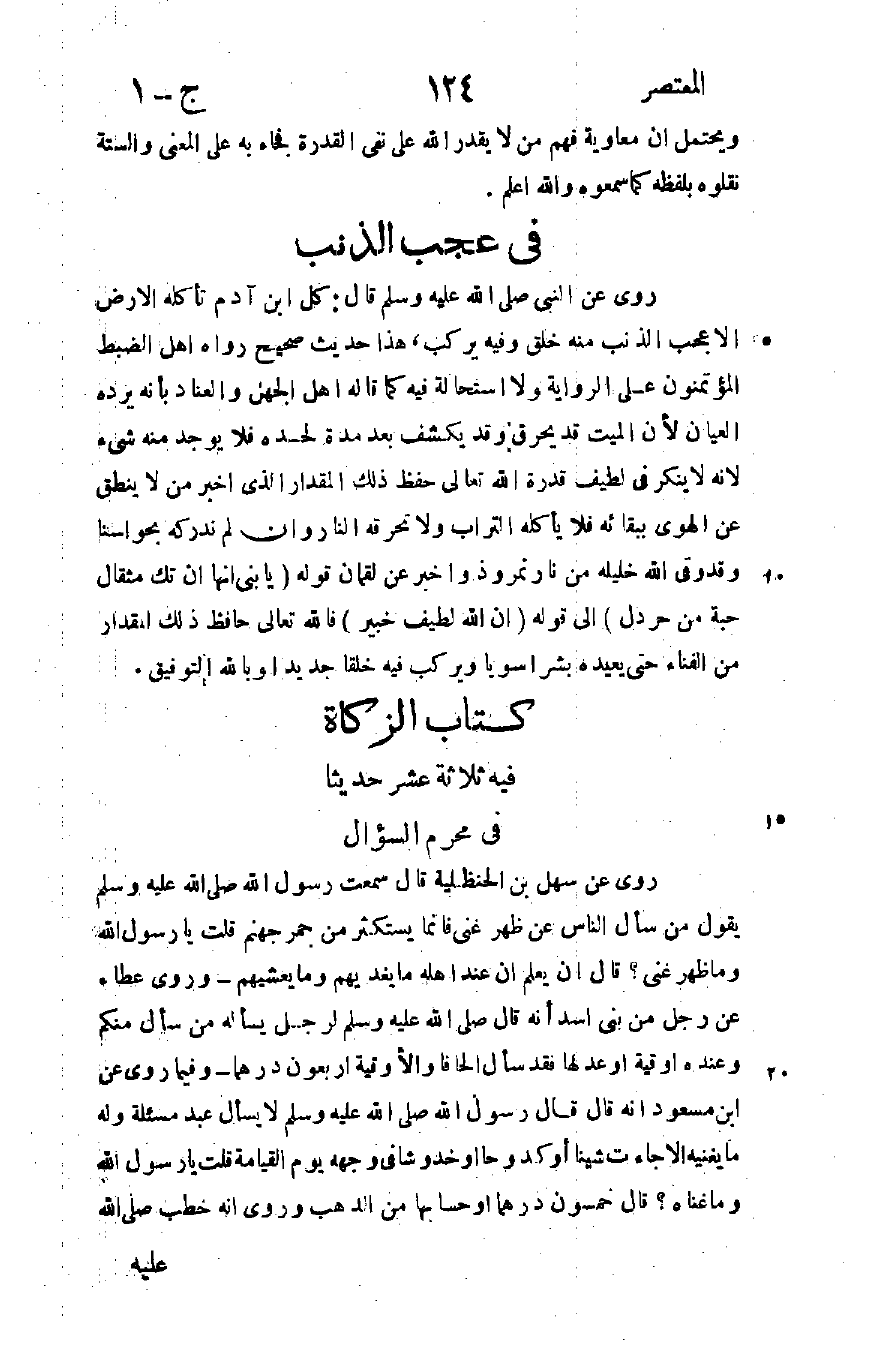 المعتصر ١٢٤ ج – ١
ويحتمل ان معاوية فهم من لا يقدر الله على نفى القدرة فجاء به على المعنى والستة
نقلوه بلفظه كما سمعوه والله اعلم .
فى عجب الذنب
روى عن النبى صلى الله عليه وسلم قال: كل ابن آدم تأكله الارض
الا عجب الذنب منه خلق وفيه يركب، هذا حديث صحيح رواه اهل الضبط
٥
المؤتمنون على الرواية ولا استحالة فيه كما قاله اهل الجهل والعناد بأنه يرده
العيان لأن الميت قد يحرق وقد يكشف بعد مدة لحده فلا يوجد منه شىء
لانه لا ينكر فى لطيف قدرة الله تعالى حفظ ذلك المقدار الذى اخبر من لا ينطق
عن الهوى ببقائه فلا يأكله التراب ولا تحرقه النار وان لم ندركه بحواسنا
وقد وقى الله خليله من نار نمروذ واخبر عن لقمان قوله ( يا بنى انها ان تك مثقال
١٠
حبة من خردل ) الى قوله ( ان الله لطيف خبير ) فالله تعالى حافظ ذلك المقدار
من الفناء حتى يعيده بشرا سويا ويركب فيه خلقا جديدا وبالله التوفيق .
كتاب الزكاة
فيه ثلاثة عشر حديثا
فى محرم السؤال
١٥
روى عن سهل بن الحنظلية قال سمعت رسول الله صلى الله عليه وسلم
يقول من سأل الناس عن ظهر غنى فانما يستكثر من جمر جهنم قلت يا رسول الله
وما ظهر غنى ؟ قال ان يعلم ان عند اهله ما يغديهم وما يعشيهم – وروى عطاء
عن رجل من بنى اسد أنه قال صلى الله عليه وسلم لرجل يسأله من سأل منكم
وعنده اوقية او عدلها فقد سأل الحافا والأوقية اربعون درهما – وفيما روى عن
٢٠
ابن مسعود انه قال قال رسول الله صلى الله عليه وسلم لا يسأل عبد مسئلة وله
ما يغنيه الا جاءت شينا أو كدوحا او خدوشا فى وجهه يوم القيامة قلت يا رسول الله
وما غناه ؟ قال خمسون درهما او حسابها من الذهب وروى انه خطب صلى الله
عليه